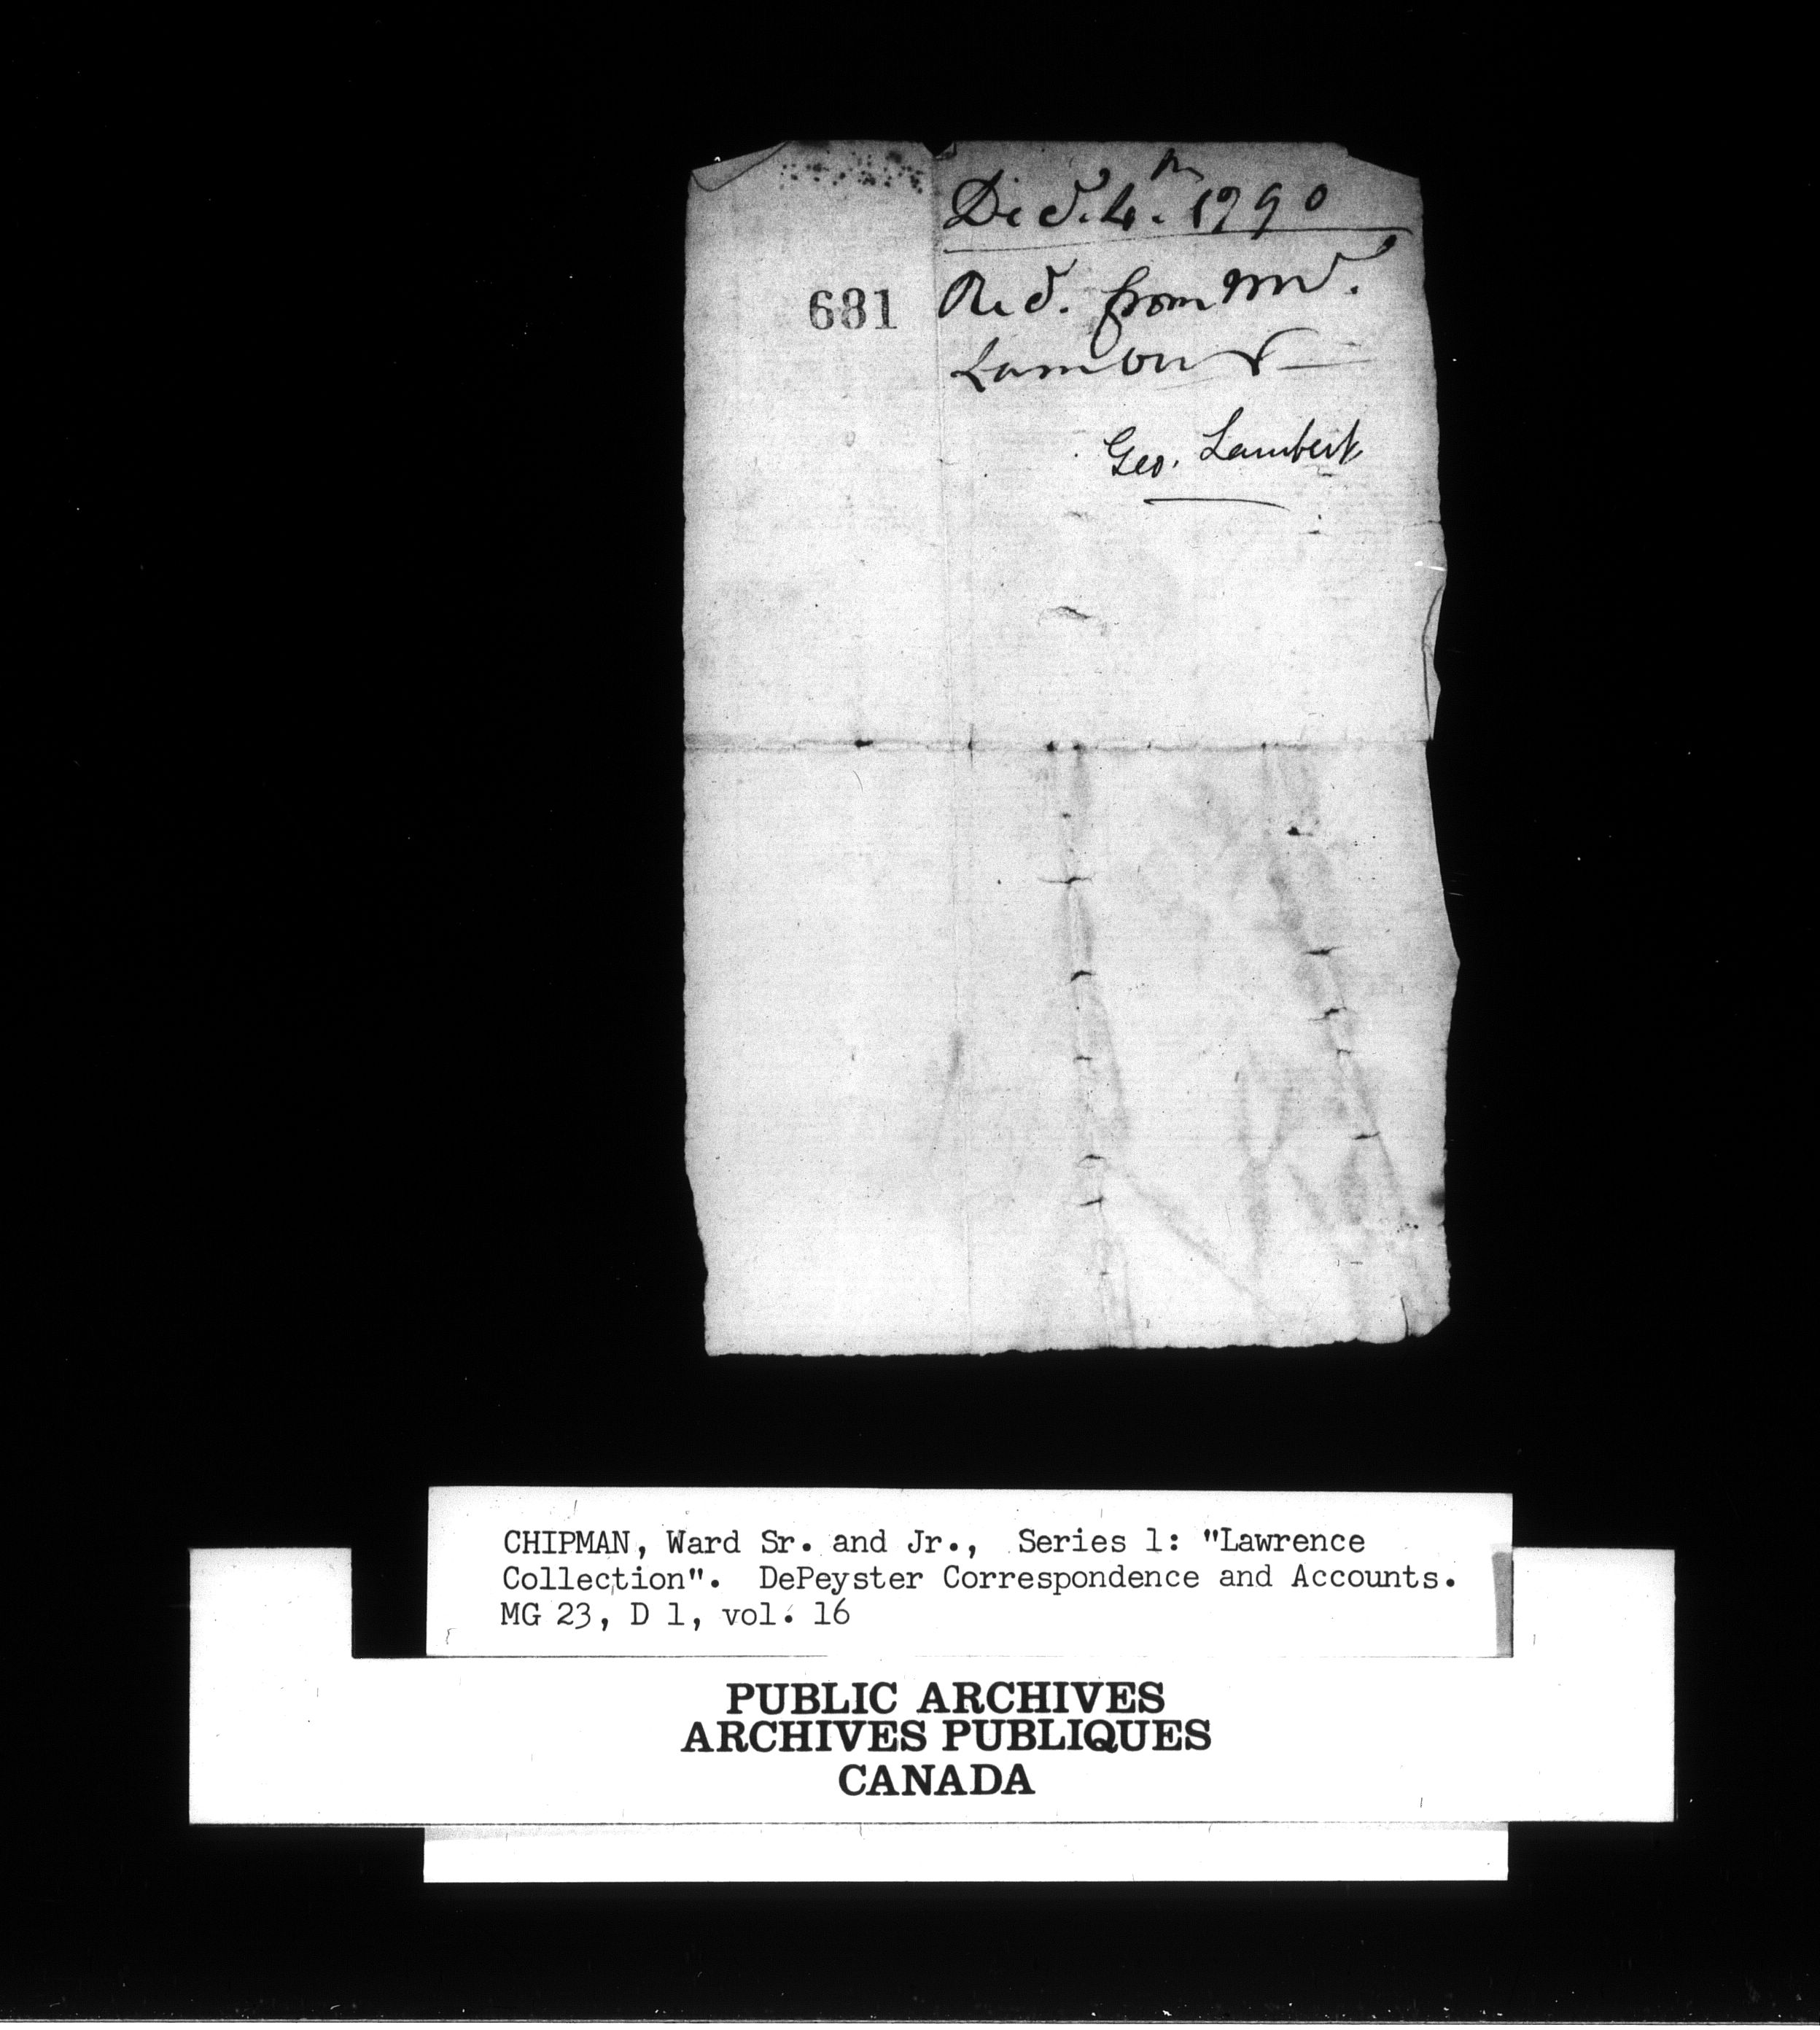 Decr. 4th. 1790
681
Recd. from Mr.
Lambert
Geo. Lambert
CHIPMAN, Ward Sr. and Jr., Series 1: "Lawrence
Collection". DePeyster Correspondence and Accounts.
MG 23, D 1, vol. 16
PUBLIC ARCHIVES
ARCHIVES PUBLIQUES
CANADA